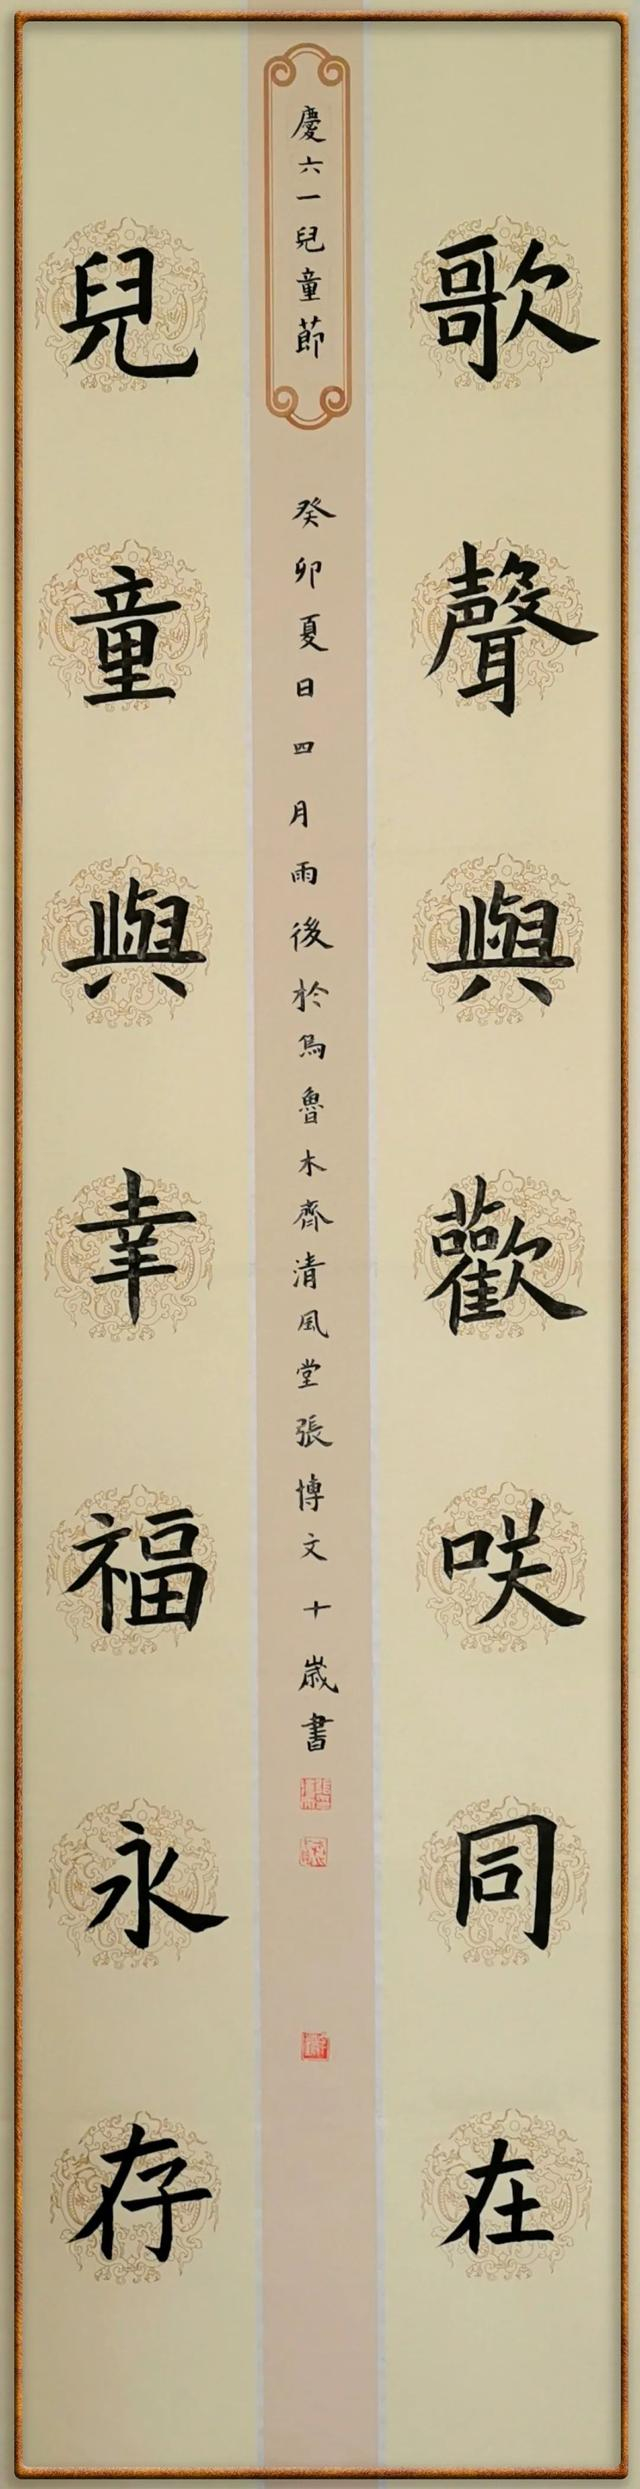 歌聲與歡咲同在
慶六一兒童節
癸卯夏日四月雨後於烏魯木齊清風堂張博文十歲書
兒童與幸福永存